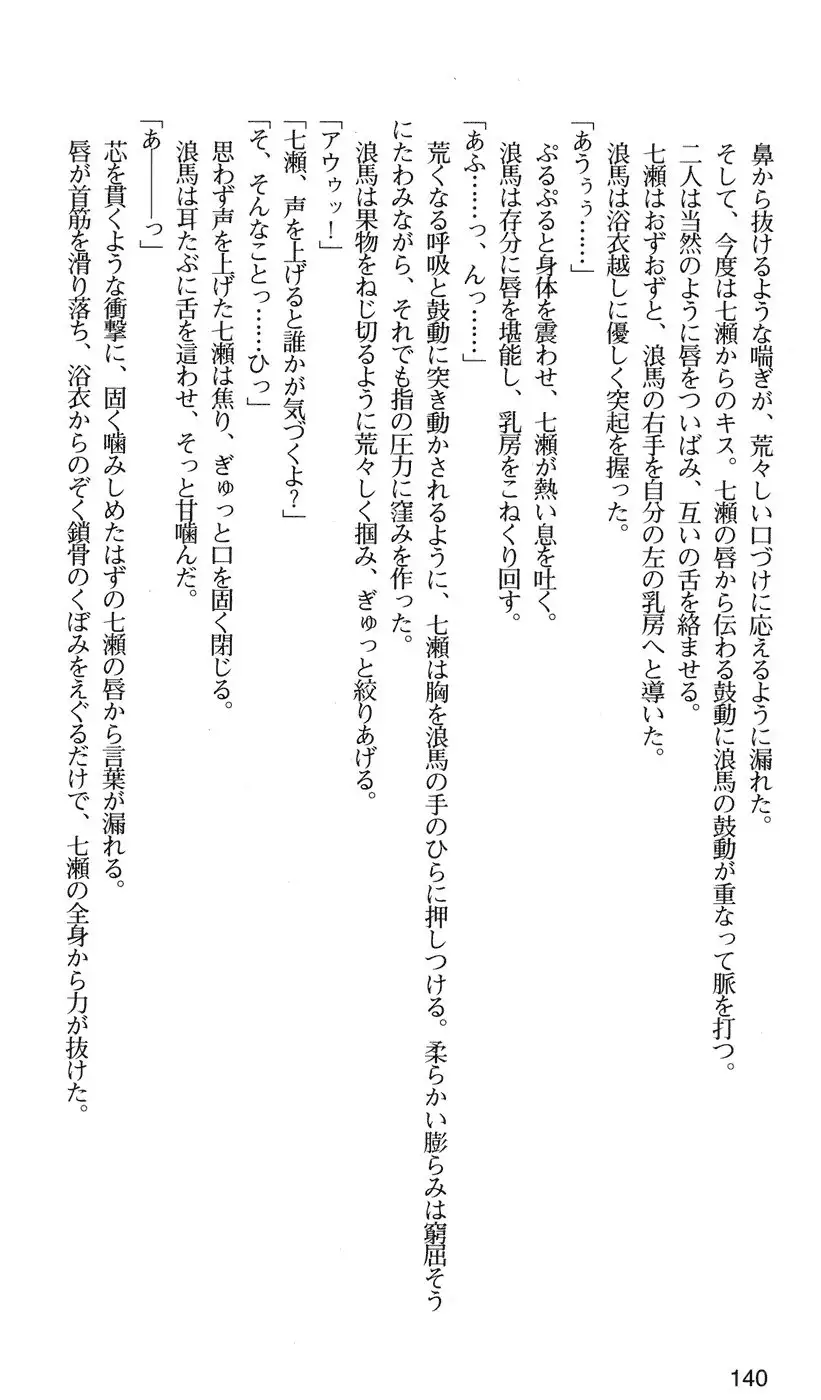 鼻から抜けるような喘ぎが、荒々しい口づけに応えるように漏れた。
そして、今度は七瀬からのキス。七瀬の唇から伝わる鼓動に浪馬の鼓動が重なって脈を打つ。
二人は当然のように唇をついばみ、互いの舌を絡ませる。
七瀬はおずおずと、浪馬の右手を自分の左の乳房へと導いた。
浪馬は浴衣越しに優しく突起を握った。
「あうぅぅ……」
ぷるぷると身体を震わせ、七瀬が熱い息を吐く。
浪馬は存分に唇を堪能し、乳房をこねくり回す。
「あふ……っ、んっ……」
荒くなる呼吸と鼓動に突き動かされるように、七瀬は胸を浪馬の手のひらに押しつける。柔らかい膨らみは窮屈そう
にたわみながら、それでも指の圧力に窪みを作った。
浪馬は果物をねじ切るように荒々しく掴み、ぎゅっと絞りあげる。
「アウゥッ！」
「七瀬、声を上げると誰かが気づくよ？」
「そ、そんなことっ……ひっ」
思わず声を上げた七瀬は焦り、ぎゅっと口を固く閉じる。
浪馬は耳たぶに舌を這わせ、そっと甘噛んだ。
「あ―――っ」
芯を貫くような衝撃に、固く噛みしめたはずの七瀬の唇から言葉が漏れる。
唇が首筋を滑り落ち、浴衣からのぞく鎖骨のくぼみをえぐるだけで、七瀬の全身から力が抜けた。
140